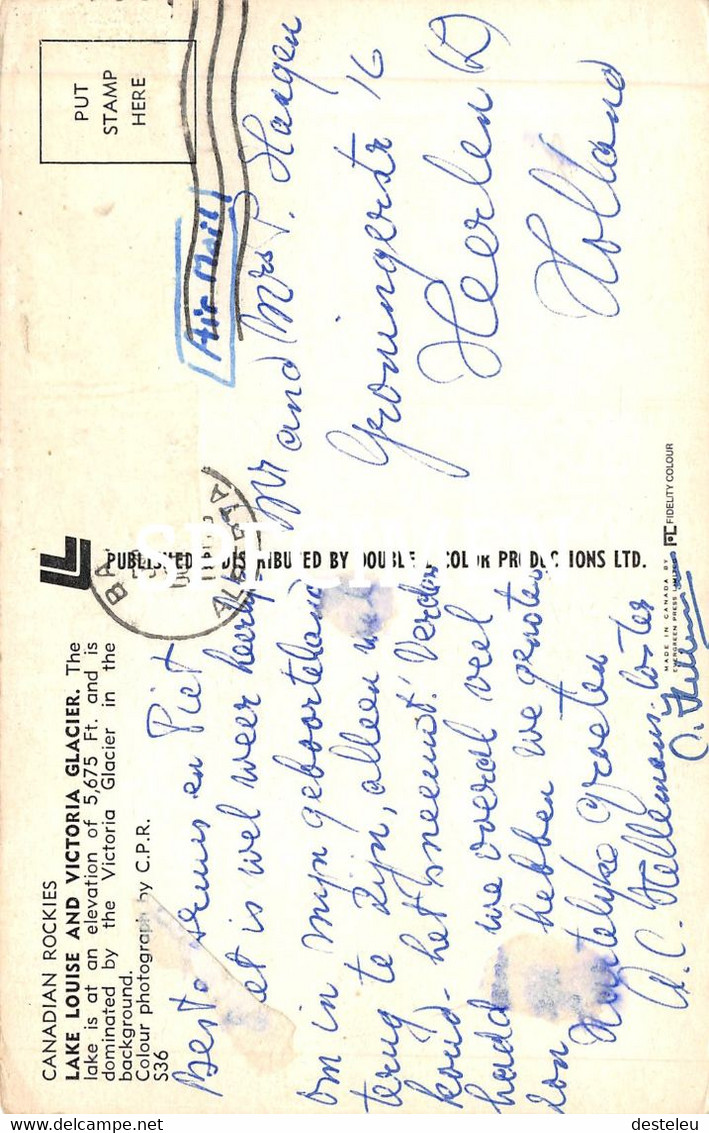 CANADIAN ROCKIES
LAKE LOUISE AND VICTORIA GLACIER. The
lake is at an elevation of 5,675 Ft. and is
dominated by the Victoria Glacier in the
background.
Colour photograph by C.P.R.
S36
Beste en Piet
et is wel weer heerl
om in mijn geboorteland
terug te zijn, alleen wel
koud - het sneeuwt! Verder
hadd we overal veel
zon hebben we genoten
Hartelijke Groeten
A.C. Hellemons
C. Hellemons
PUBLISHED DISTRIBUTED BY DOUBLE COLOR PRODUCTIONS LTD.
MADE IN CANADA BY
EVERGREEN PRESS LIMITED
FIDELITY COLOUR
PUT
STAMP
HERE
Air Mail!
ALBERTA
Mr and Mrs P. Haagen
Groningerstr 16
Heerlen (L)
Holland
SPECIMEN
www.delcampe.net
desteleu